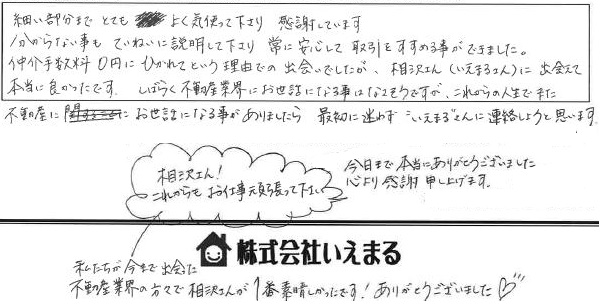 細い部分まで とても よく気使って下さり 感謝しています
分からない事も ていねいに説明して下さり 常に安心して 取引をすすめる事ができました。
仲介手数料 0円に ひかれてという 理由での 出会いでしたが、相沢さん(いえまるさん)に 出会えて
本当に良かったです。しばらく不動産業界にお世話になる事はなさそうですが、これからの人生でまた
不動産に お世話になる事がありましたら 最初に迷わず いえまるさんに連絡しようと思います。
今日まで本当にありがとうございました
心より感謝申し上げます。
相沢さん!
これからも お仕事頑張って下さい
株式会社いえまる
私たちが今まで出会った
不動産業界の方々で 相沢さんが 1番素晴しかったです! ありがとうございました♡